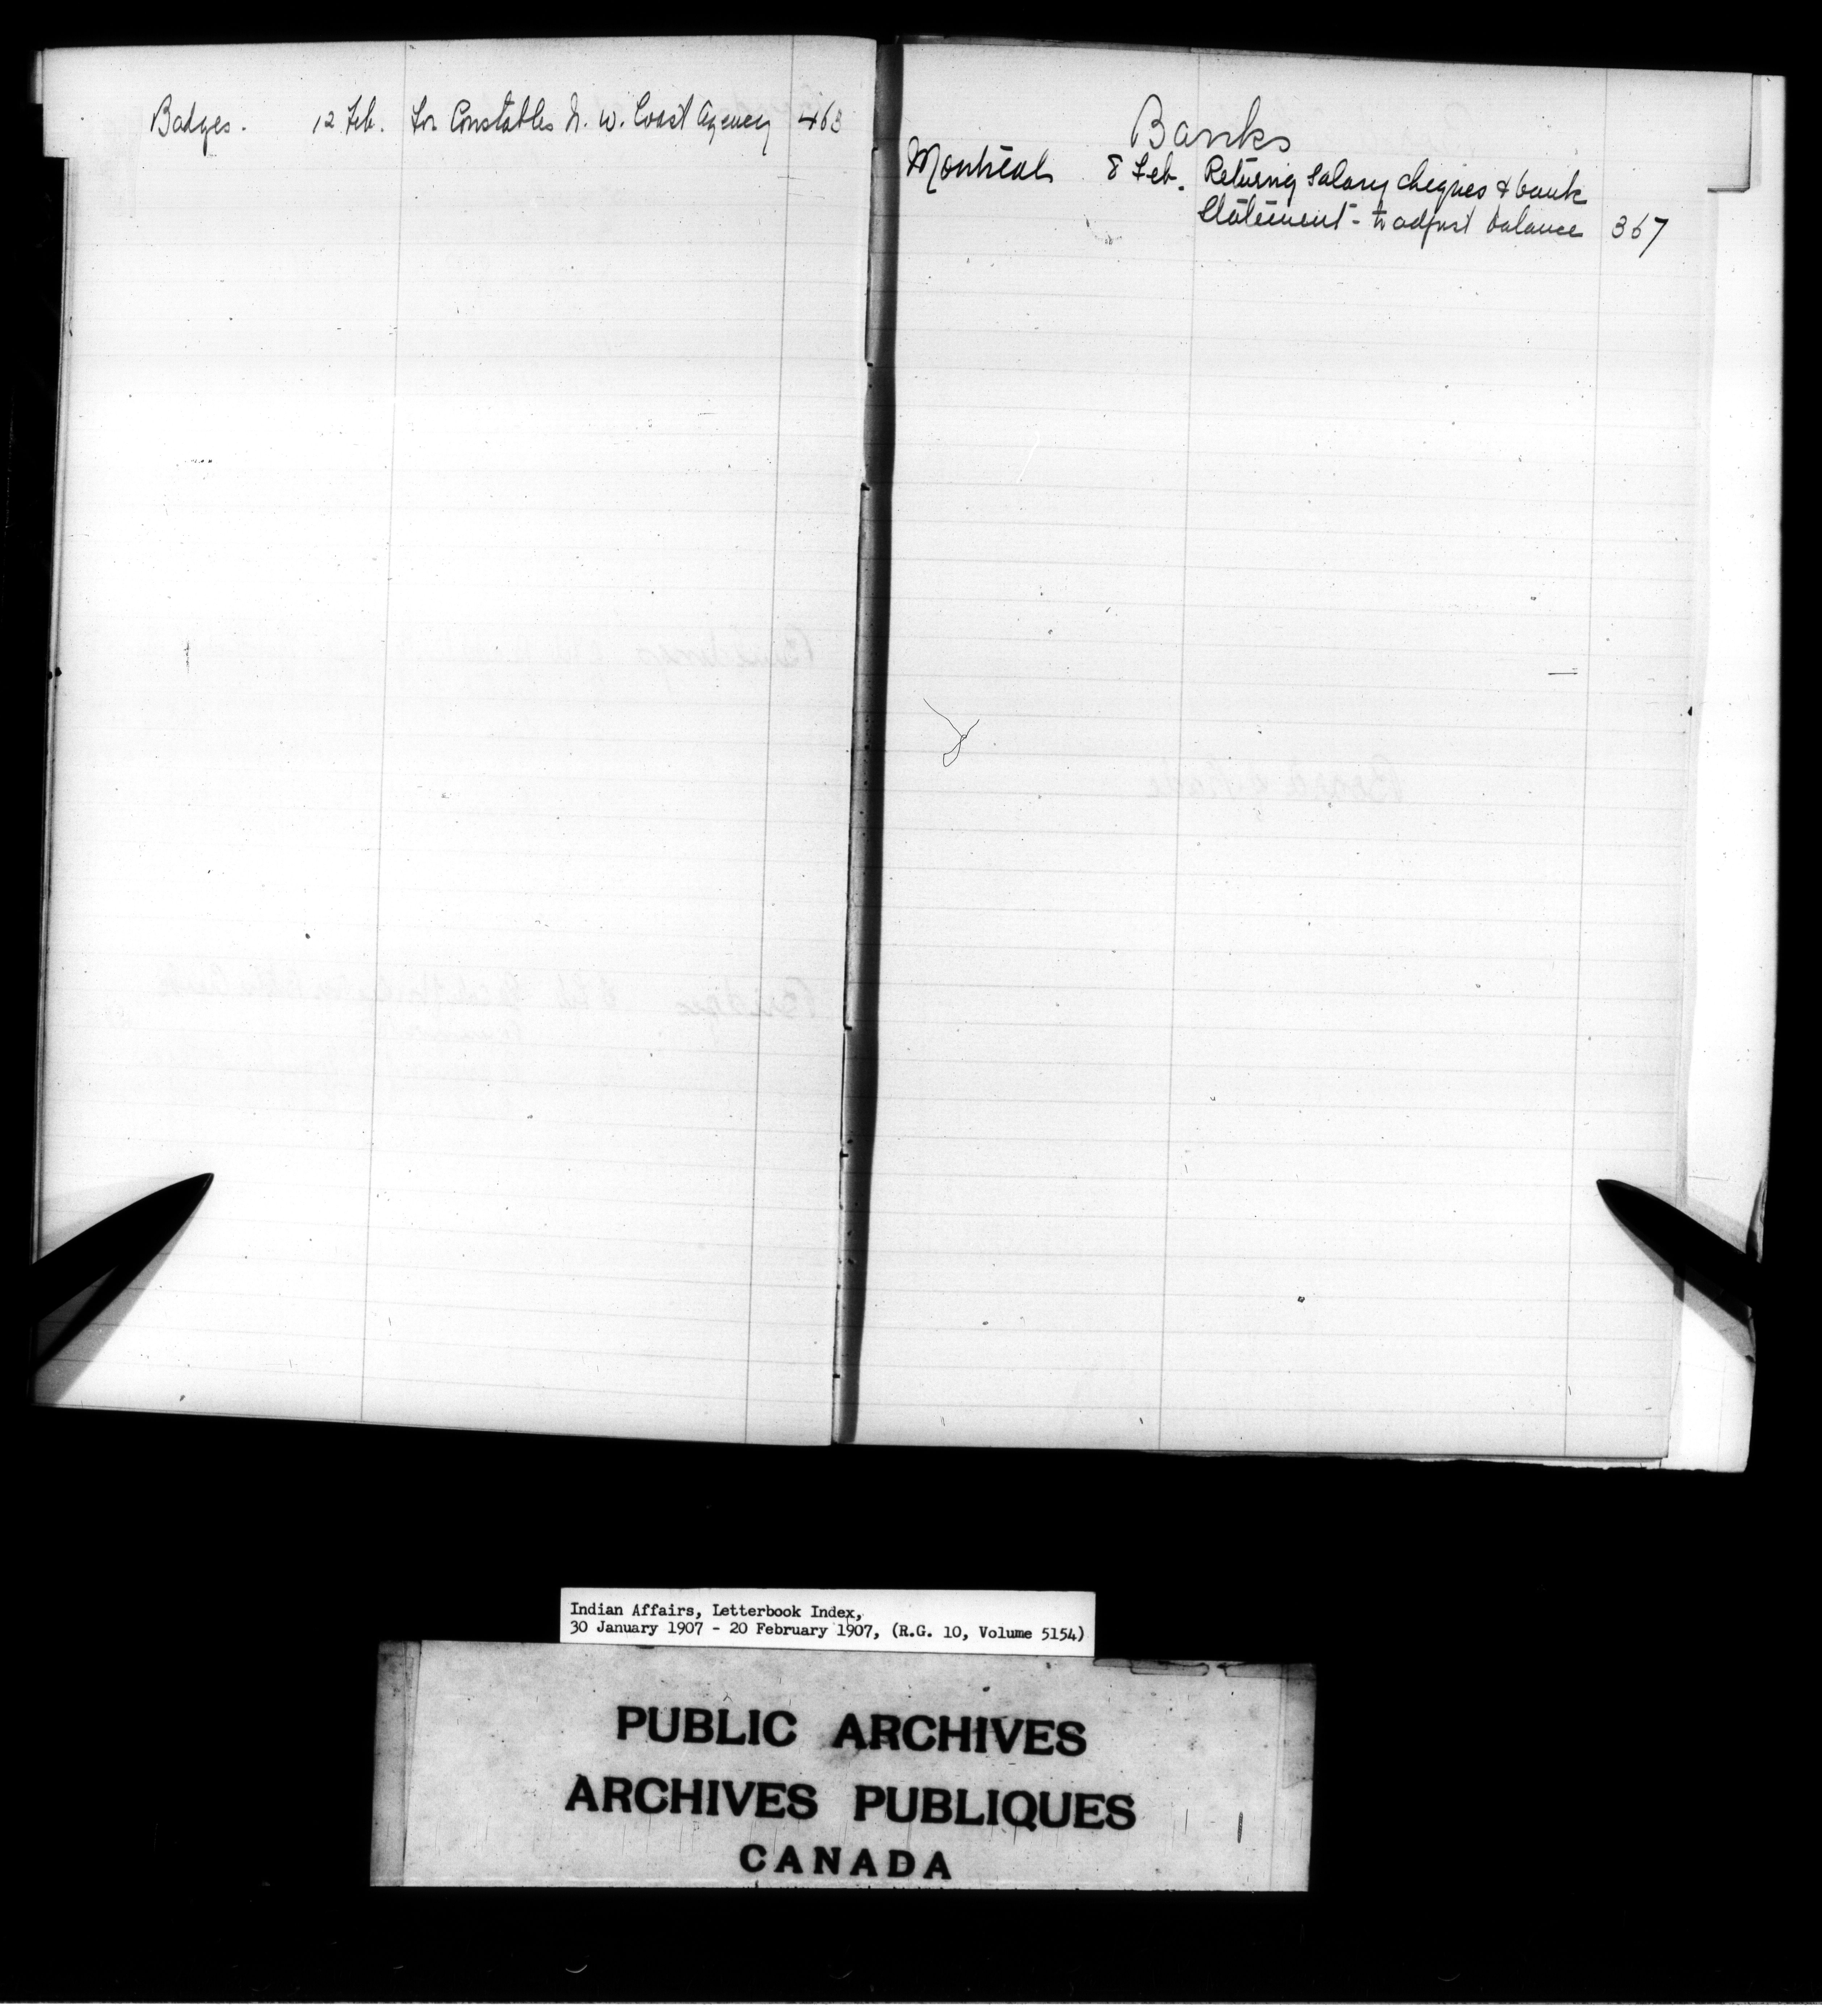 Badges. 12 Feb. For Constables N. W. Coast Agency 463
Banks
Montreal 8 Feb. Returng salary cheques & bank
Statement - to adjust balance 367
Indian Affairs, Letterbook Index,
30 January 1907 - 20 February 1907, (R.G. 10, Volume 5154)
PUBLIC ARCHIVES
ARCHIVES PUBLIQUES
CANADA